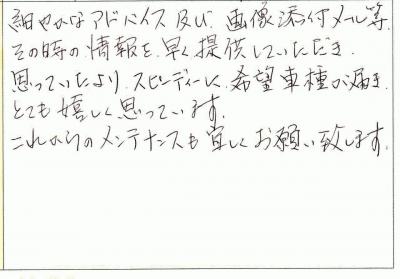 細やかなアドバイス及び、画像添付メール等、
その時の情報を早く提供していただき、
思っていたより、スピーディーに希望車種が届き、
とても嬉しく思っています。
これからのメンテナンスも宜しくお願い致します。